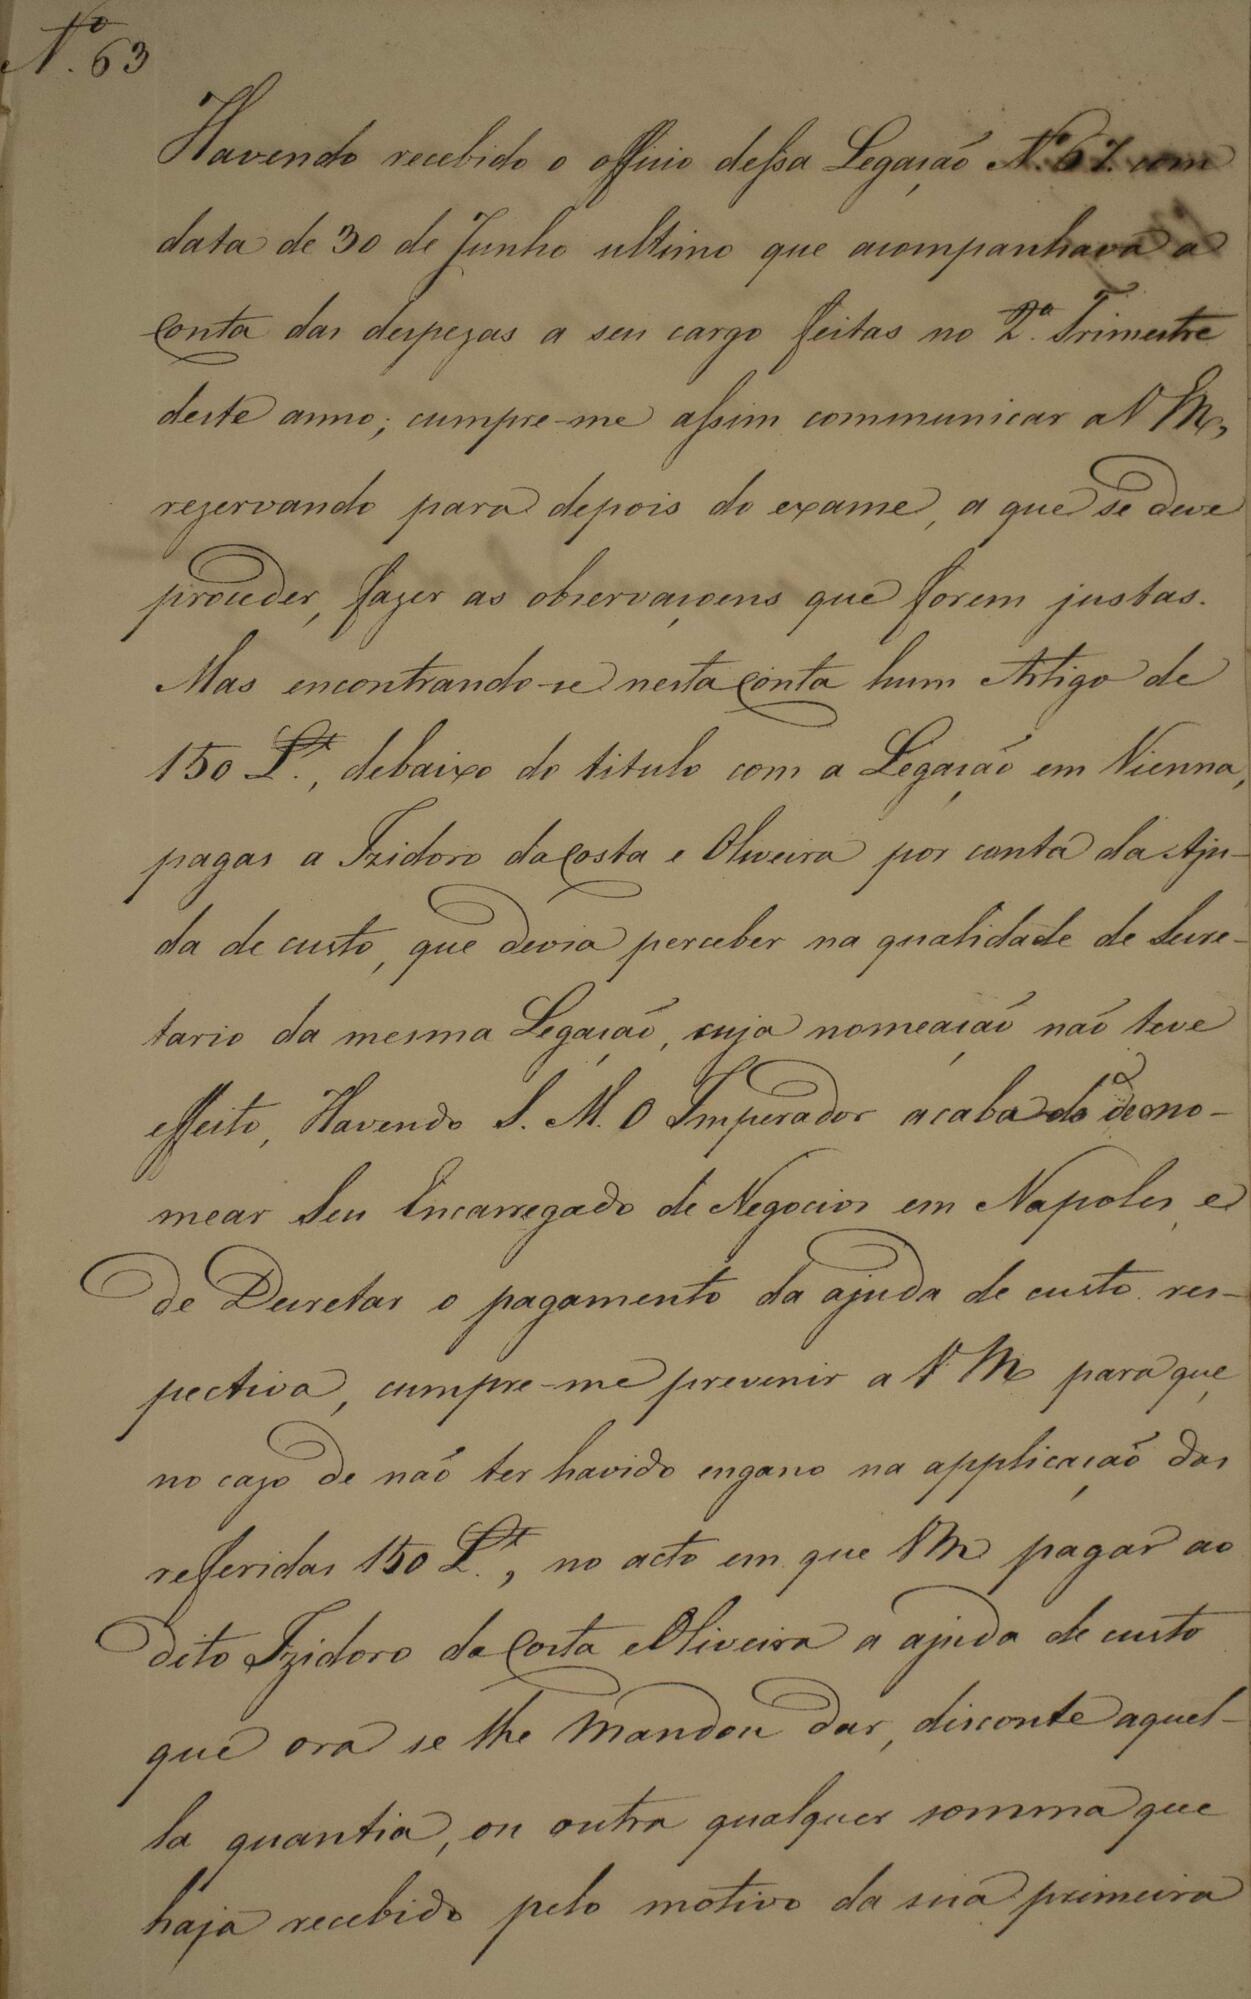 Nº. 63
Havendo recebido o officio dessa Legação Nº. 67. com
data de 30 de Junho ultimo que acompanhava a
Conta das despezas a seu cargo feitas no 2º. Trimestre
deste anno; cumpre-me assim communicar a V M,
rezervando para depois do exame, a que se deve
proceder, fazer as observaçoens que forem justas.
Mas encontrando-se nesta Conta hum Artigo de
150 L.ˢᵗ, debaixo do titulo com a Legação em Vienna,
pagas a Izidoro da Costa e Oliveira por conta da Aju-
da de custo, que devia perceber na qualidade de Secre-
tario da mesma Legação, cuja nomeação não teve
effeito, Havendo S. M. O Imperador acabado de no-
mear Seu Encarregado de Negocios em Napoles, e
de Decretar o pagamento da ajuda de custo res-
pectiva, cumpre-me prevenir a V M para que,
no cazo de não ter havido engano na applicação das
referidas 150 L.ˢᵗ, no acto em que VM pagar ao
dito Izidoro da Costa e Oliveira a ajuda de custo
que ora se lhe Mandou dar, disconte aquel-
la quantia, ou outra qualquer somma que
haja recebido pelo motivo da sua primeira